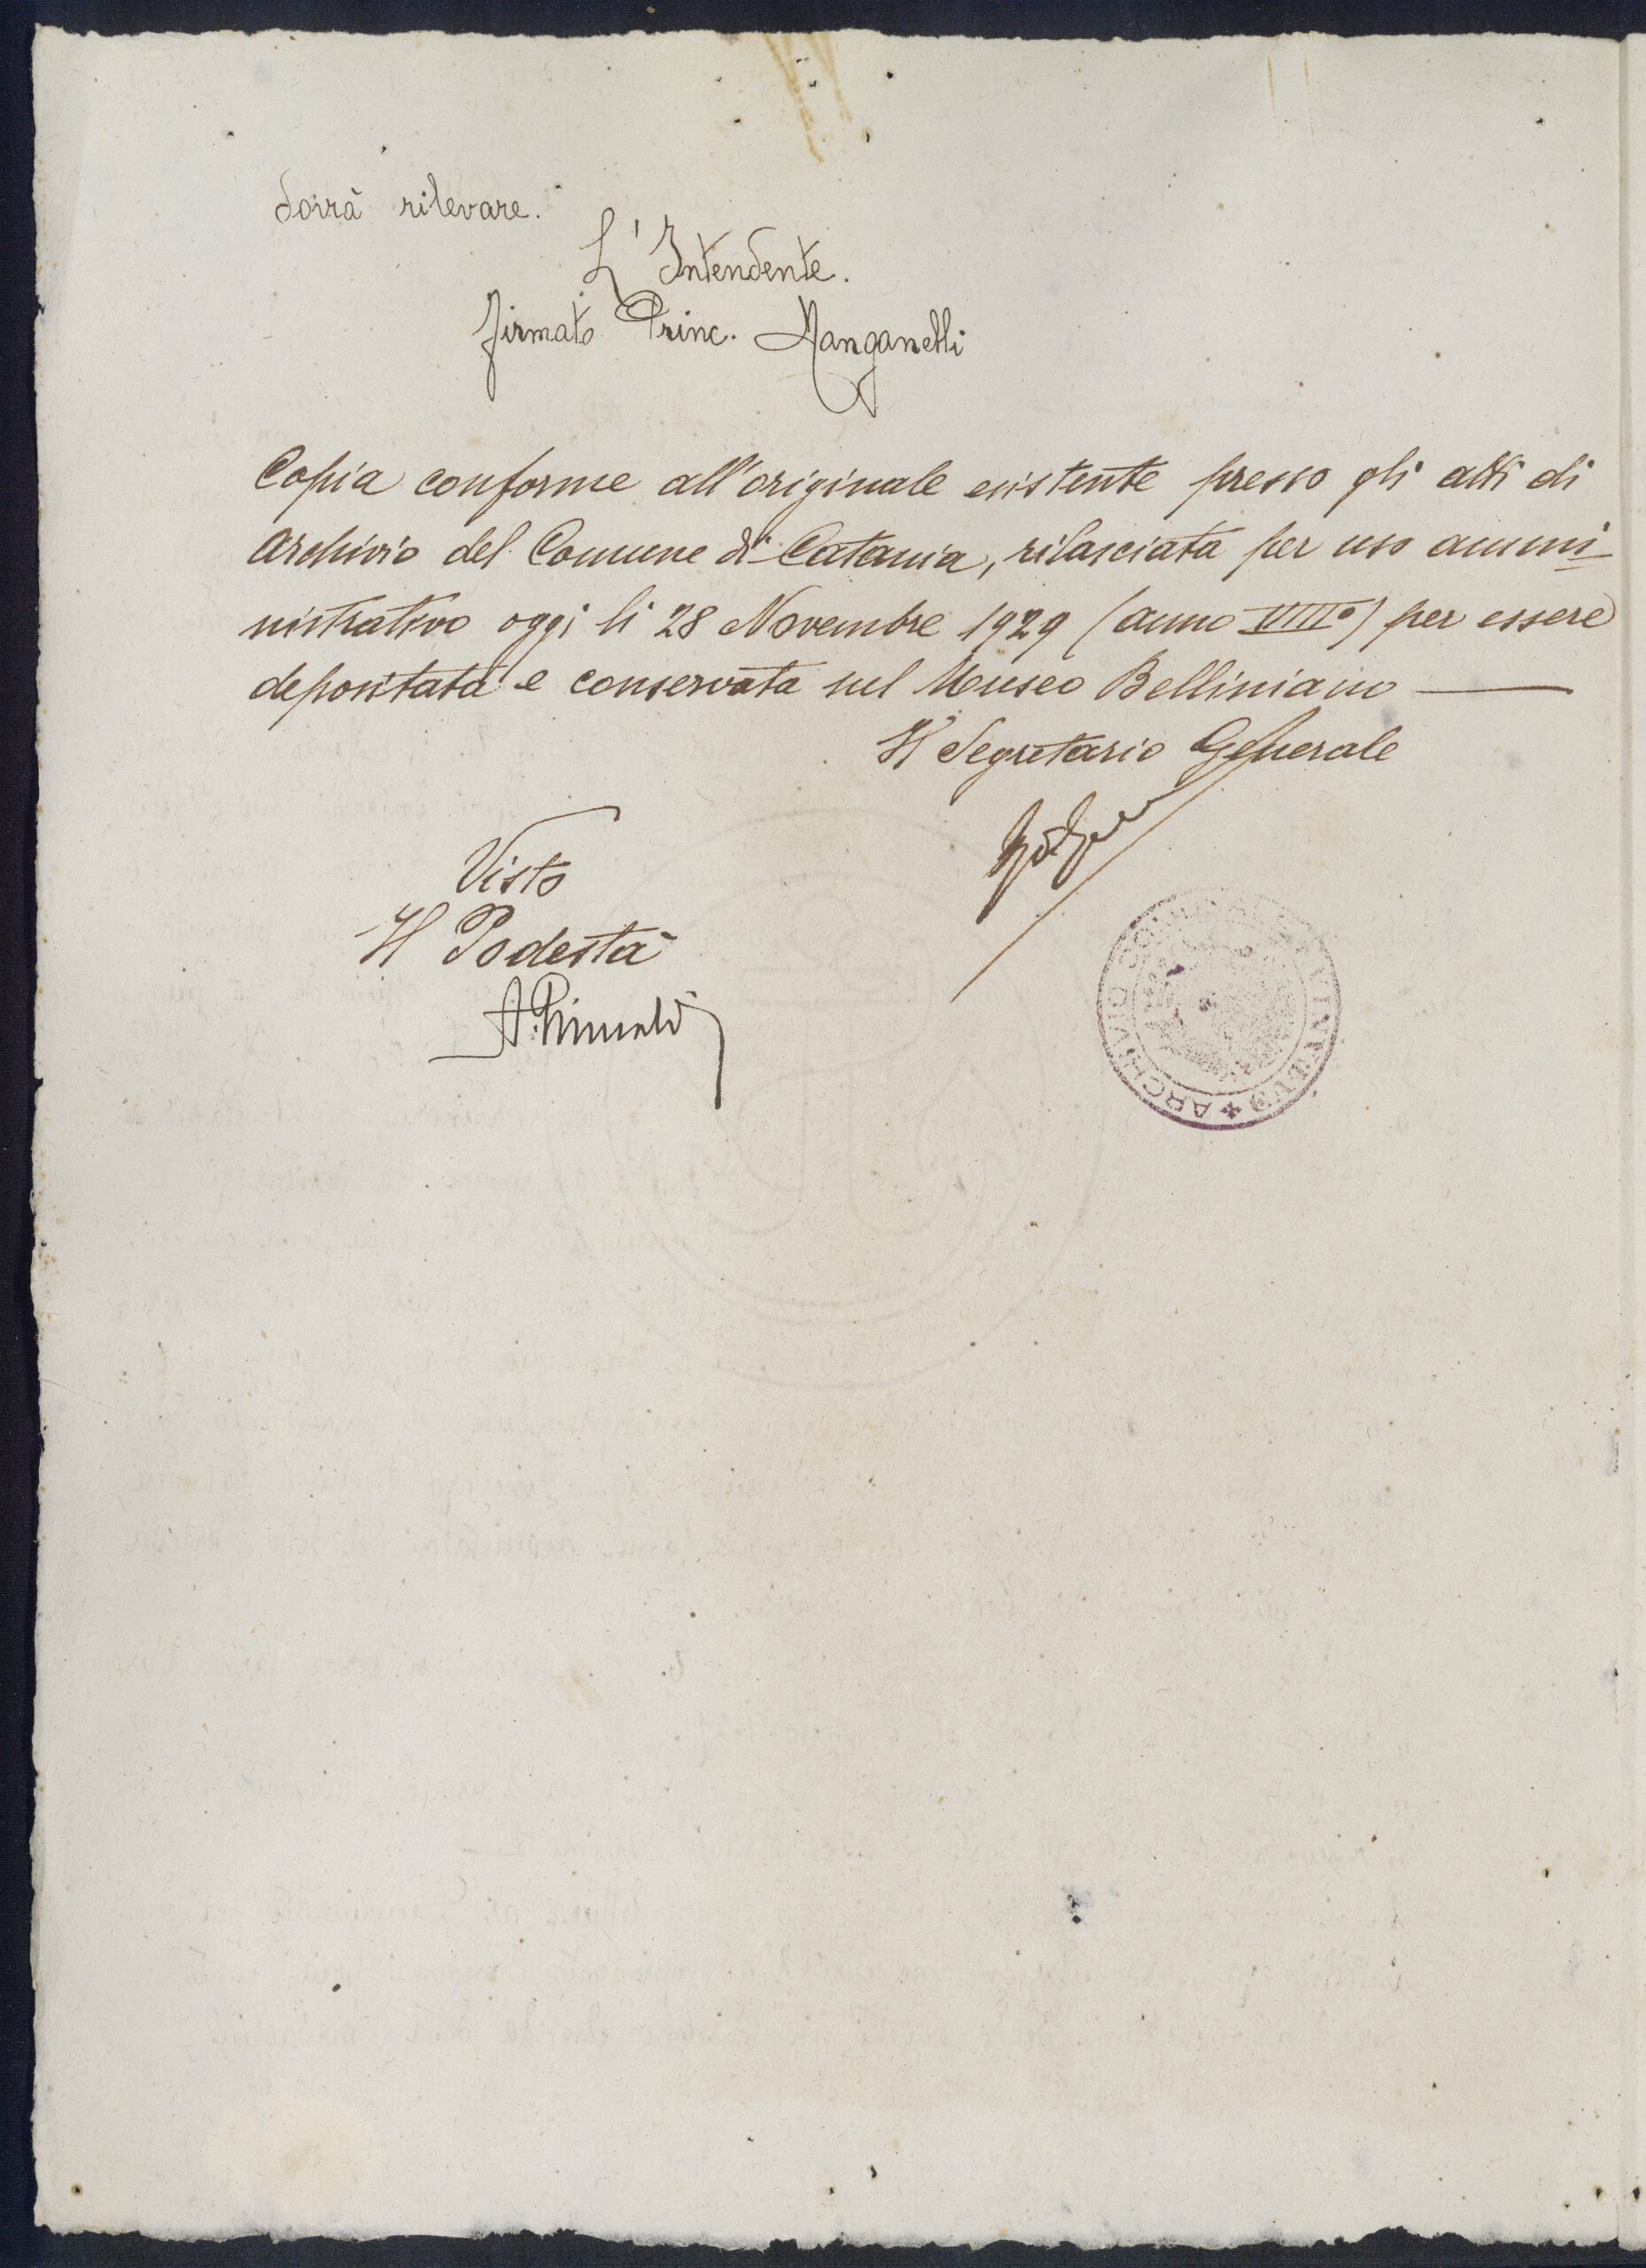 dovrà rilevare.
L'Intendente.
firmato Princ. Manganelli
Copia conforme all'originale esistente presso gli atti di
archivio del Comune di Catania, rilasciata per uso ammi-
nistrativo oggi li 28 Novembre 1929 (anno VIII°) per essere
depositata e conservata nel Museo Belliniano
Il Segretario Generale
Visto
Il Podestà
ARCHIVIO COMUNALE CATANIA